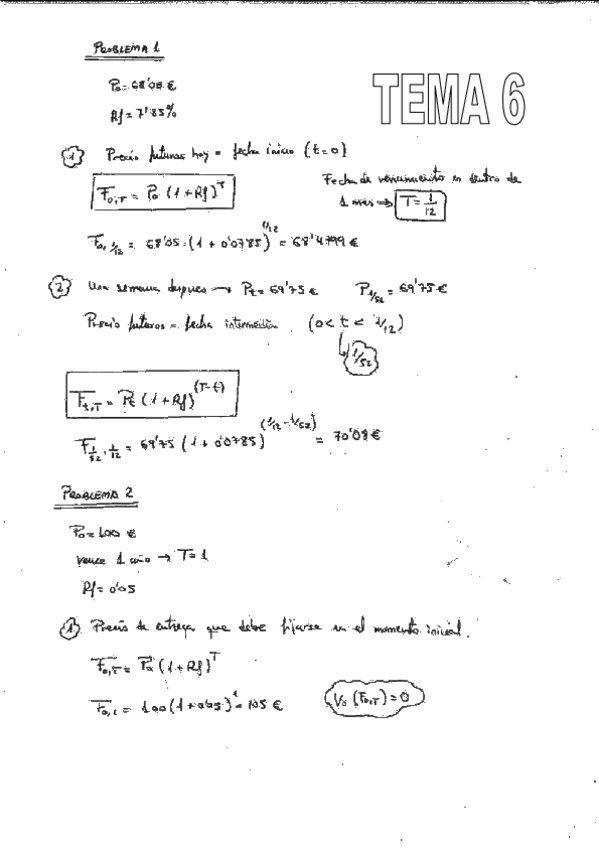 PROBLEMA 1
TEMA 6
P₀ = 68'05 €
Rf = 7'85%
① Precio futuros hoy = fecha inicio (t=0)
F₀,T = P₀ (1+Rf)^T
Fecha de vencimiento es dentro de
1 mes → T = 1/12
F₀,1/12 = 68'05 · (1 + 0'0785)^1/12 = 68'4799 €
② Una semana después → Pt = 69'75 € P1/52 = 69'75 €
Precio futuros = fecha intermedia (0 < t < 1/12)
1/52
Ft,T = Pt (1+Rf)^(T-t)
F1/52,1/12 = 69'75 (1 + 0'0785)^(1/12 - 1/52) = 70'08 €
PROBLEMA 2
P₀ = 100 €
vence 1 año → T=1
Rf = 0'05
① Precio de entrega que debe fijarse en el momento inicial.
F₀,T = P₀ (1+Rf)^T
F₀,1 = 100 (1+0'05)^1 = 105 €
V₀ (F₀,T) = 0